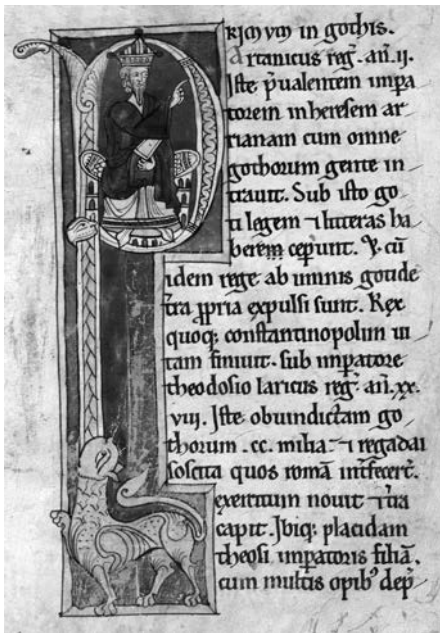 PRIMUM in gothis.
Artanicus reg̃. añ. ii.
Iste p̃ualentem impa
torem in heresem ar
rianam cum omne
gothorum gente in
trauit. Sub isto go
ti legem ⁊ litteras ha
berem cep̃unt. cũ
idem rege ab unnis goti de
t̃ra ꝓpria expulsi sunt. Rex
quoq; constantinopolim ui
tam finiuit. sub imp̃atore
theodosio laricus reg̃. añ. xx.
viii. Iste ob uindictam go
thorum .cc. milia ⁊ regadai
soscita quos romã int̃fecer̃t.
exercitum nouit
capit. Ibiq; placidam
theosi imp̃atoris filiã.
cum multis opib᷒ dep̃